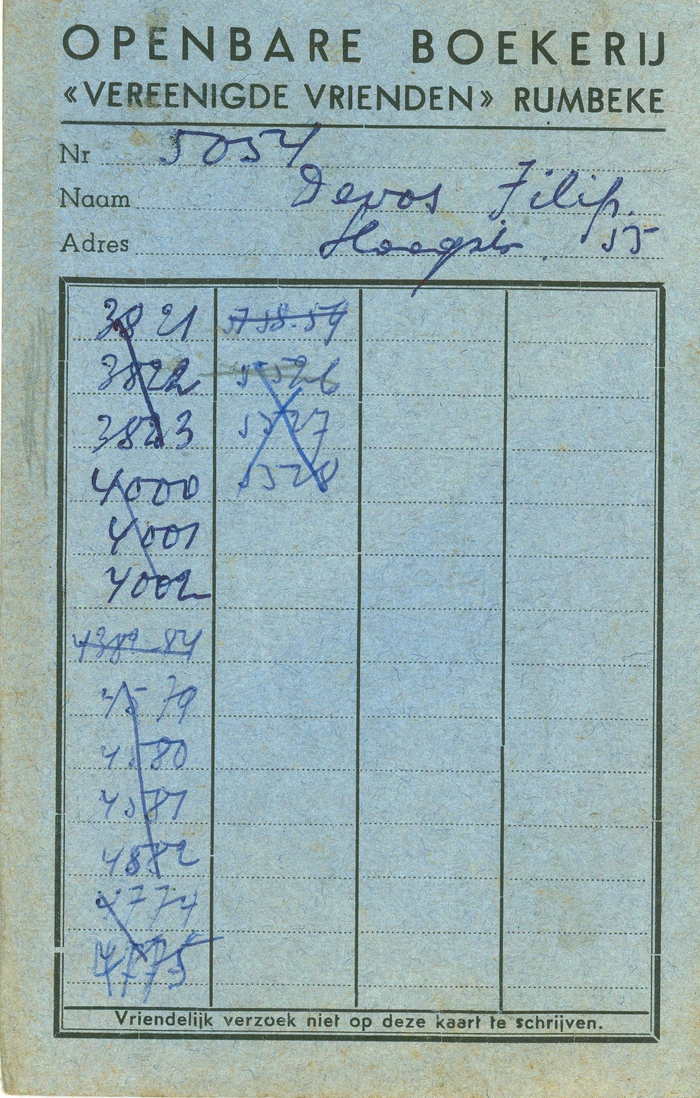 OPENBARE BOEKERIJ
«VEREENIGDE VRIENDEN» RUMBEKE
Nr 5054
Naam Devos Filip.
Adres Hoogstr. 55
3821
3822
3823
4000
4001
4002
4383-84
4579
4580
4581
4582
4774
4775
5526
5527
5528
Vriendelijk verzoek niet op deze kaart te schrijven.